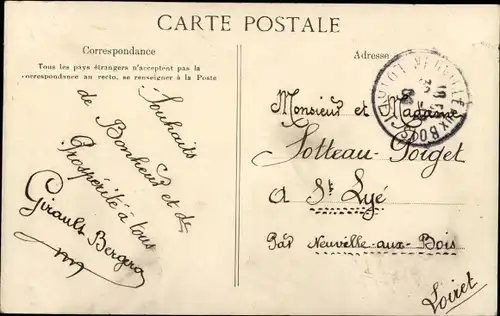 CARTE POSTALE
Correspondance
Tous les pays étrangers n'acceptent pas la
correspondance au recto, se renseigner à la Poste
Souhaits
de Bonheur et de
Prospérité à tous
Girault Bergero
Adresse
Monsieur et Madame
Lotteau-Poiget
à St Lyé
Par Neuville-aux-Bois
Loiret